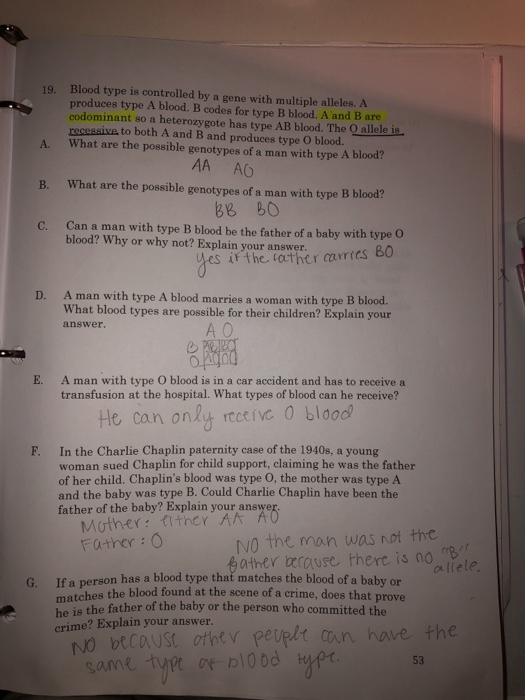 19. Blood type is controlled by a gene with multiple alleles. A
produces type A blood. B codes for type B blood. A and B are
codominant so a heterozygote has type AB blood. The O allele is
recessive to both A and B and produces type O blood.
A. What are the possible genotypes of a man with type A blood?
AA AO
B. What are the possible genotypes of a man with type B blood?
BB BO
C. Can a man with type B blood be the father of a baby with type O
blood? Why or why not? Explain your answer.
Yes if the father carries BO
D. A man with type A blood marries a woman with type B blood.
What blood types are possible for their children? Explain your
answer.
A O
B
O
E. A man with type O blood is in a car accident and has to receive a
transfusion at the hospital. What types of blood can he receive?
He can only receive O blood
F. In the Charlie Chaplin paternity case of the 1940s, a young
woman sued Chaplin for child support, claiming he was the father
of her child. Chaplin's blood was type O, the mother was type A
and the baby was type B. Could Charlie Chaplin have been the
father of the baby? Explain your answer.
Mother: either AA AO
Father: O
No the man was not the
father because there is no "B"
allele.
G. If a person has a blood type that matches the blood of a baby or
matches the blood found at the scene of a crime, does that prove
he is the father of the baby or the person who committed the
crime? Explain your answer.
No because other people can have the
same type of blood type.
53